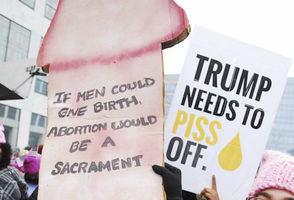 IF MEN COULD
GIVE BIRTH,
ABORTION WOULD
BE A
SACRAMENT
TRUMP
NEEDS TO
PISS
OFF.